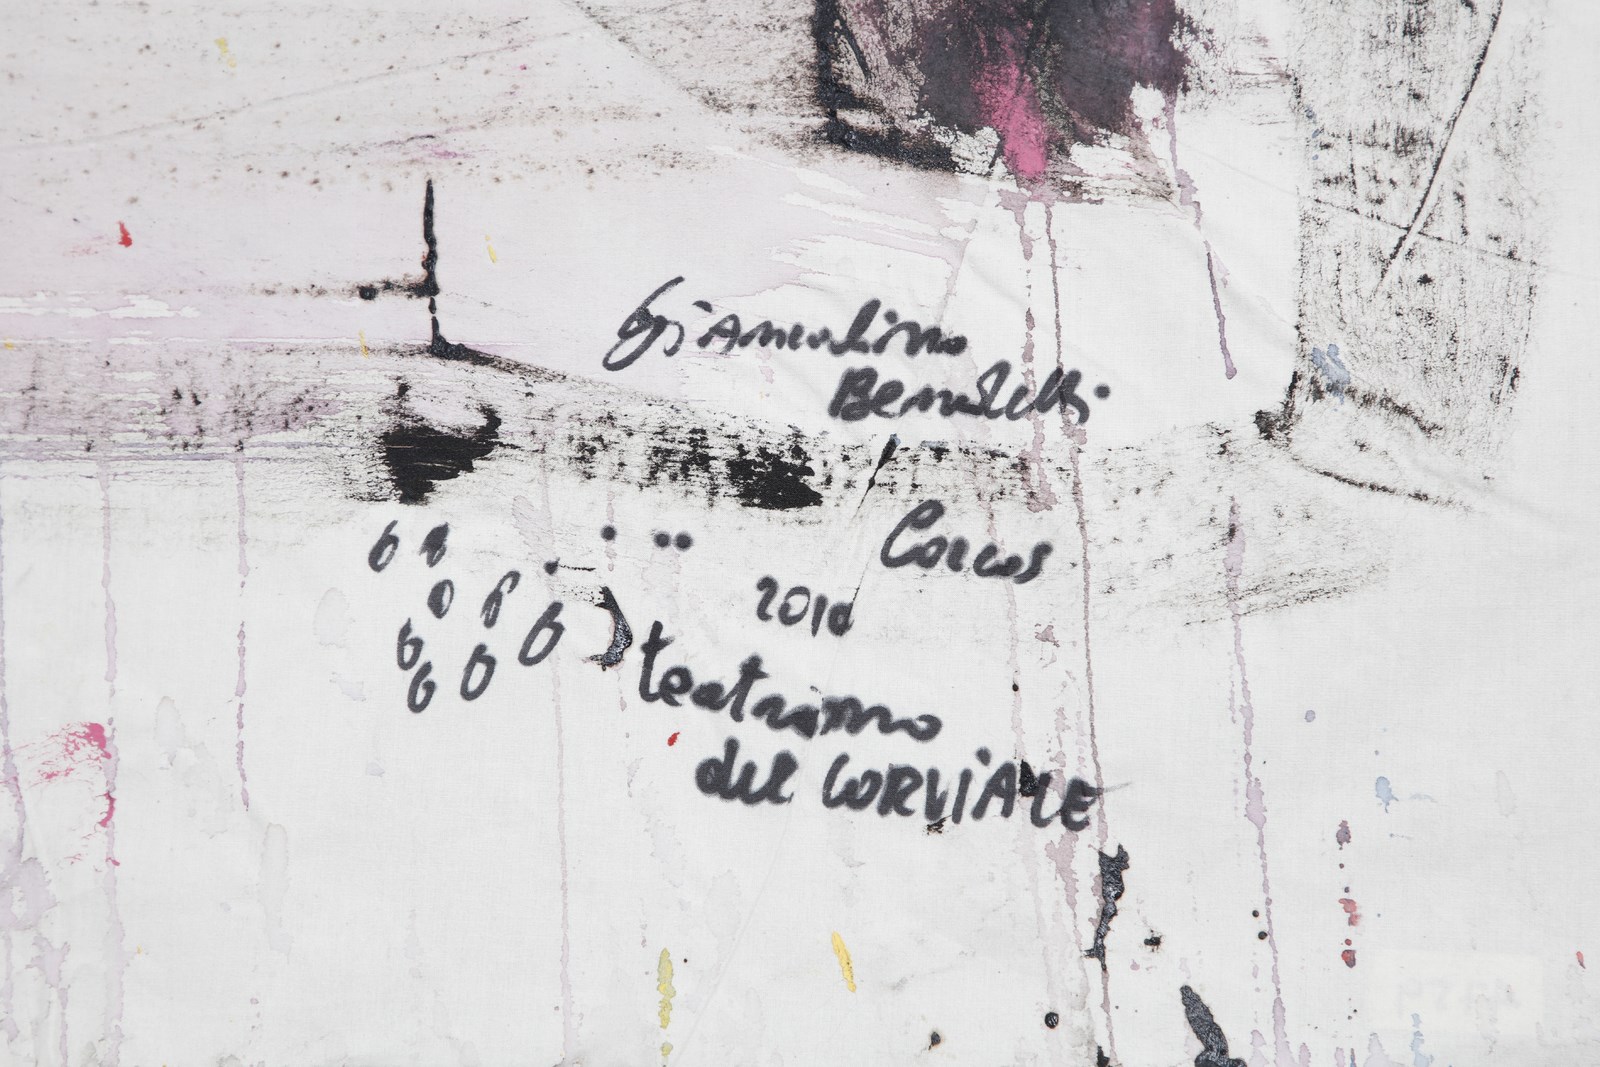 Giancarlino
Benedetti
Corcos
2010
teatrino
del CORViALE